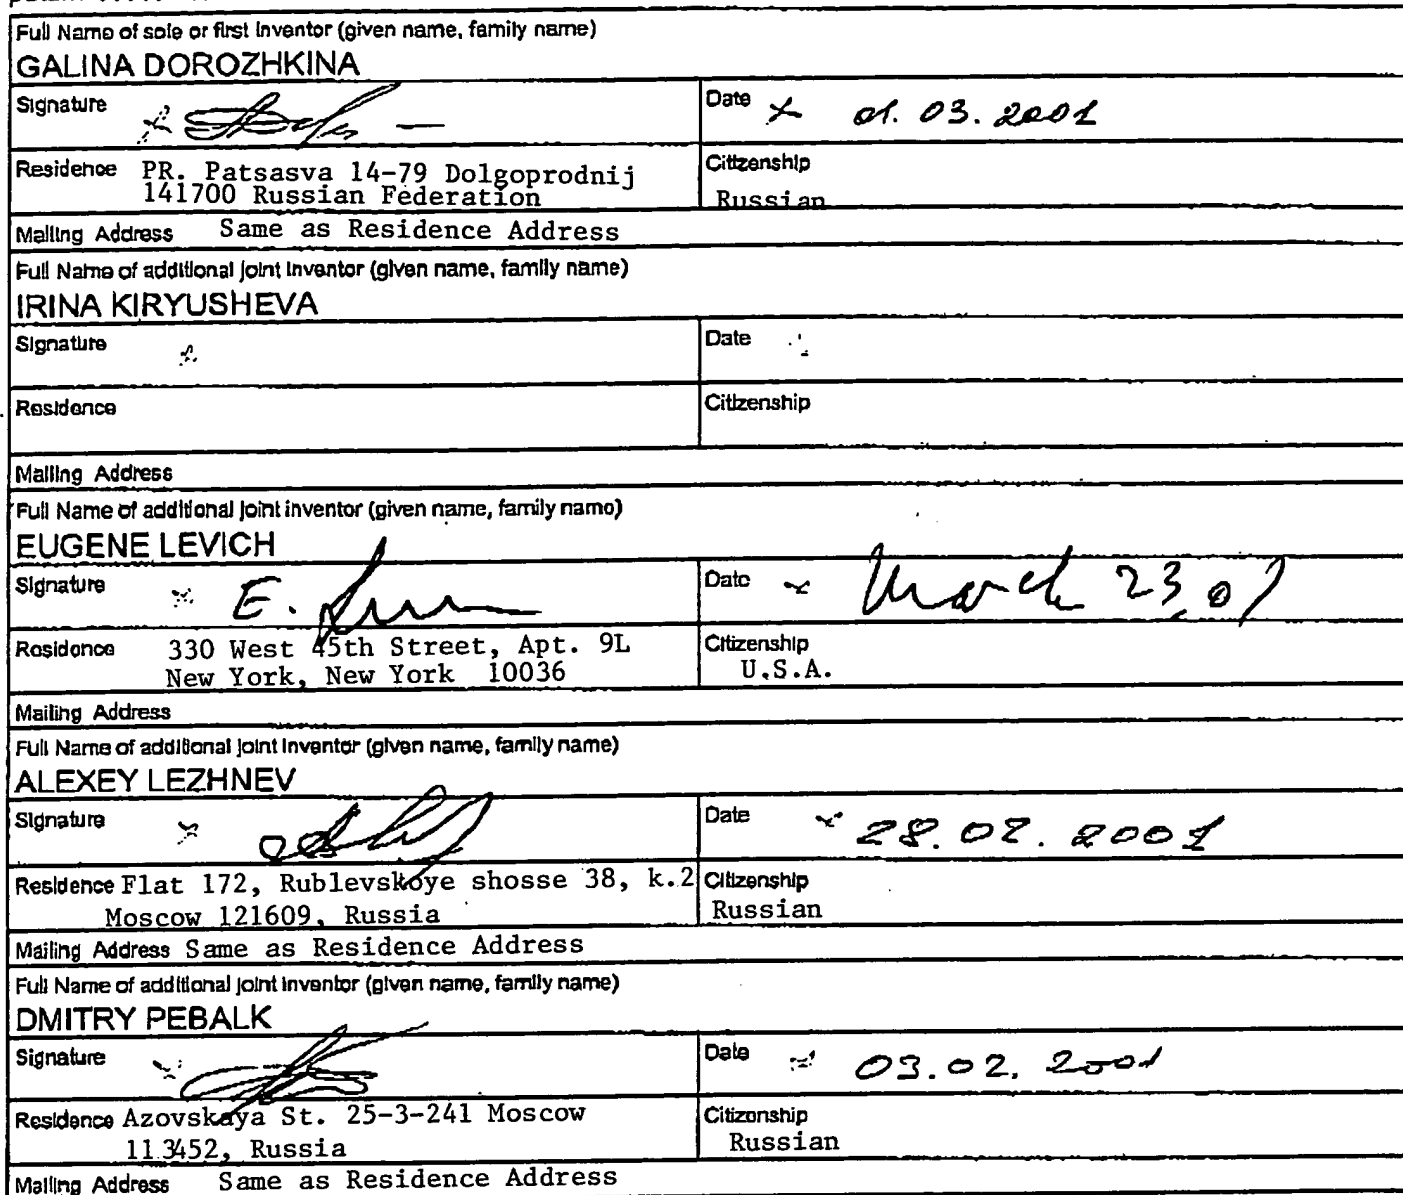 Full Name of sole or first inventor (given name, family name)
GALINA DOROZHKINA
Signature
Date 01.03.2001
Residence PR. Patsasva 14-79 Dolgoprodnij
141700 Russian Federation
Citizenship
Russian
Mailing Address Same as Residence Address
Full Name of additional joint inventor (given name, family name)
IRINA KIRYUSHEVA
Signature
Date
Residence
Citizenship
Mailing Address
Full Name of additional joint inventor (given name, family name)
EUGENE LEVICH
Signature E.
Date March 23, 01
Residence 330 West 45th Street, Apt. 9L
New York, New York 10036
Citizenship
U.S.A.
Mailing Address
Full Name of additional joint inventor (given name, family name)
ALEXEY LEZHNEV
Signature
Date 28.02.2001
Residence Flat 172, Rublevskoye shosse 38, k.2
Moscow 121609, Russia
Citizenship
Russian
Mailing Address Same as Residence Address
Full Name of additional joint inventor (given name, family name)
DMITRY PEBALK
Signature
Date 03.02.2001
Residence Azovskaya St. 25-3-241 Moscow
113452, Russia
Citizenship
Russian
Mailing Address Same as Residence Address